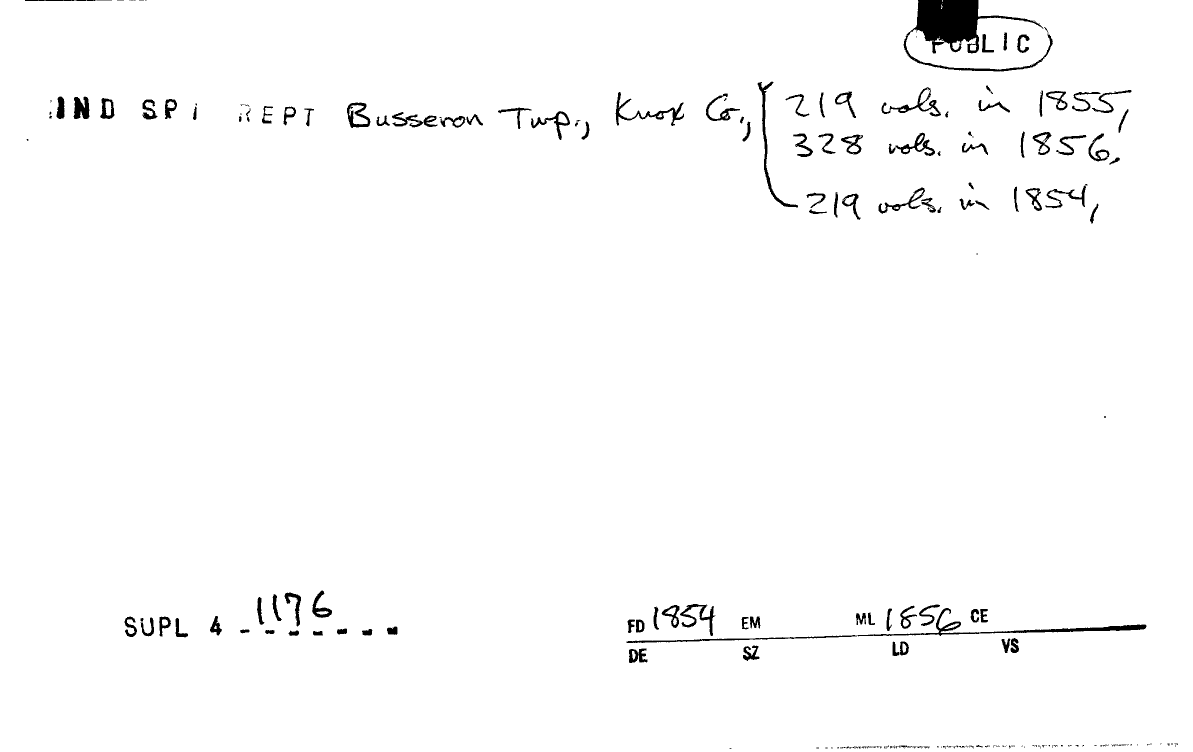 PUBLIC
IND SPI REPT Busseron Twp., Knox Co., 219 vols. in 1855,
328 vols. in 1856,
219 vols. in 1854,
SUPL 4 1176
FD 1854 EM ML 1856 CE
DE SZ LD VS